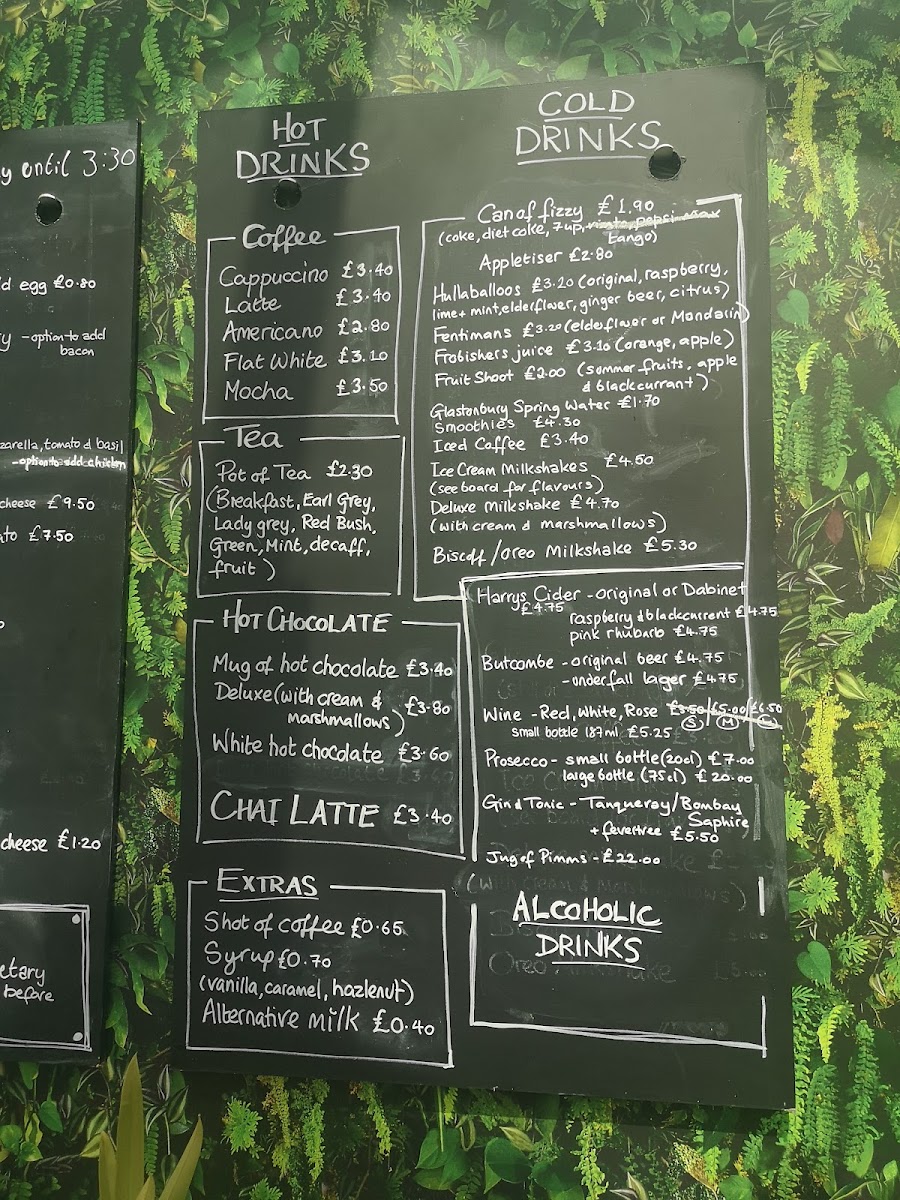 y until 3:30
d egg £0.80
y - option to add
bacon
zarella, tomato & basil
- option to add chicken
cheese £9.50
to £7.50
cheese £1.20
etary
before
HOT
DRINKS
Coffee
Cappuccino £3.40
Latte £3.40
Americano £2.80
Flat White £3.10
Mocha £3.50
Tea
Pot of Tea £2.30
(Breakfast, Earl Grey,
Lady grey, Red Bush,
Green, Mint, decaff,
fruit)
HOT CHOCOLATE
Mug of hot chocolate £3.40
Deluxe (with cream &
marshmallows) £3.80
White hot chocolate £3.60
CHAI LATTE £3.40
EXTRAS
Shot of coffee £0.65
Syrup £0.70
(vanilla, caramel, hazlenut)
Alternative milk £0.40
COLD
DRINKS
Can of fizzy £1.90
(coke, diet coke, 7up, pepsi max
tango)
Appletiser £2.80
Hullaballoos £3.20 (original, raspberry,
lime + mint, elderflower, ginger beer, citrus)
Fentimans £3.20 (elderflower or Mandarin)
Frobishers juice £3.10 (orange, apple)
Fruit Shoot £2.00 (summer fruits, apple
& blackcurrant)
Glastonbury Spring Water £1.70
Smoothies £4.30
Iced Coffee £3.40
Ice Cream Milkshakes £4.50
(see board for flavours)
Deluxe Milkshake £4.70
(with cream & marshmallows)
Biscoff/oreo Milkshake £5.30
Harrys Cider - original or Dabinet
£4.75
raspberry & blackcurrent £4.75
pink rhubarb £4.75
Butcombe - original beer £4.75
- underfall lager £4.75
Wine - Red, White, Rose £3.50/£5.00/£6.50
S M L
small bottle 187ml £5.25
Prosecco - small bottle (20cl) £7.00
large bottle (75cl) £20.00
Gin & Tonic - Tanqueray/Bombay
Saphire
+ fevertree £5.50
Jug of Pimms - £22.00
(with cream & Marshmallows)
ALCOHOLIC
DRINKS
Oreo Milkshake